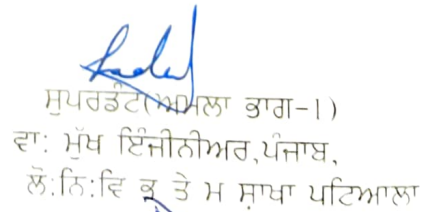 ਸੁਪਰਡੰਟ(ਅਮਲਾ ਭਾਗ-।)
ਵਾ: ਮੁੱਖ ਇੰਜੀਨੀਅਰ,ਪੰਜਾਬ,
ਲੋ:ਨਿ:ਵਿ ਭ ਤੇ ਮ ਸ਼ਾਖਾ ਪਟਿਆਲਾ